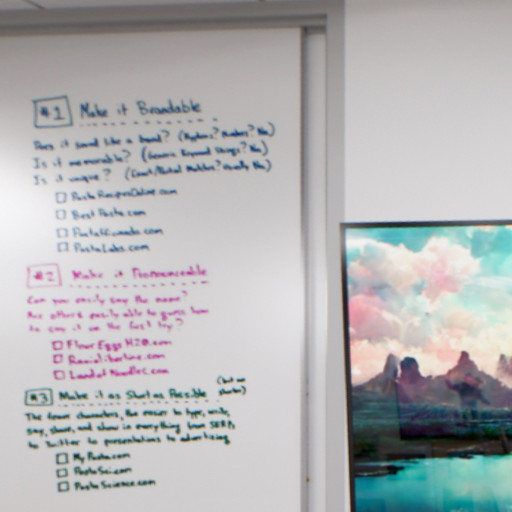 #1 Make it Brandable
Does it sound like a brand? (Hyphens? Numbers? No)
Is it memorable? (Generic Keyword Strings? No)
Is it unique? (Exact/Partial Matches? Usually No)
PastaRecipesOnline.com
BestPasta.com
PastaAficionado.com
PastaLabs.com
#2 Make it Pronounceable
Can you easily say the name?
Are others easily able to guess how
to say it on the first try?
FlourEggsH2O.com
Raviolibertine.com
LandofNoodles.com
#3 Make it as Short as Possible (but no shorter)
The fewer characters, the easier to type, write,
say, share, and show in everything from SERPs
to Twitter to presentations to advertising
MyPasta.com
PastaSci.com
PastaScience.com